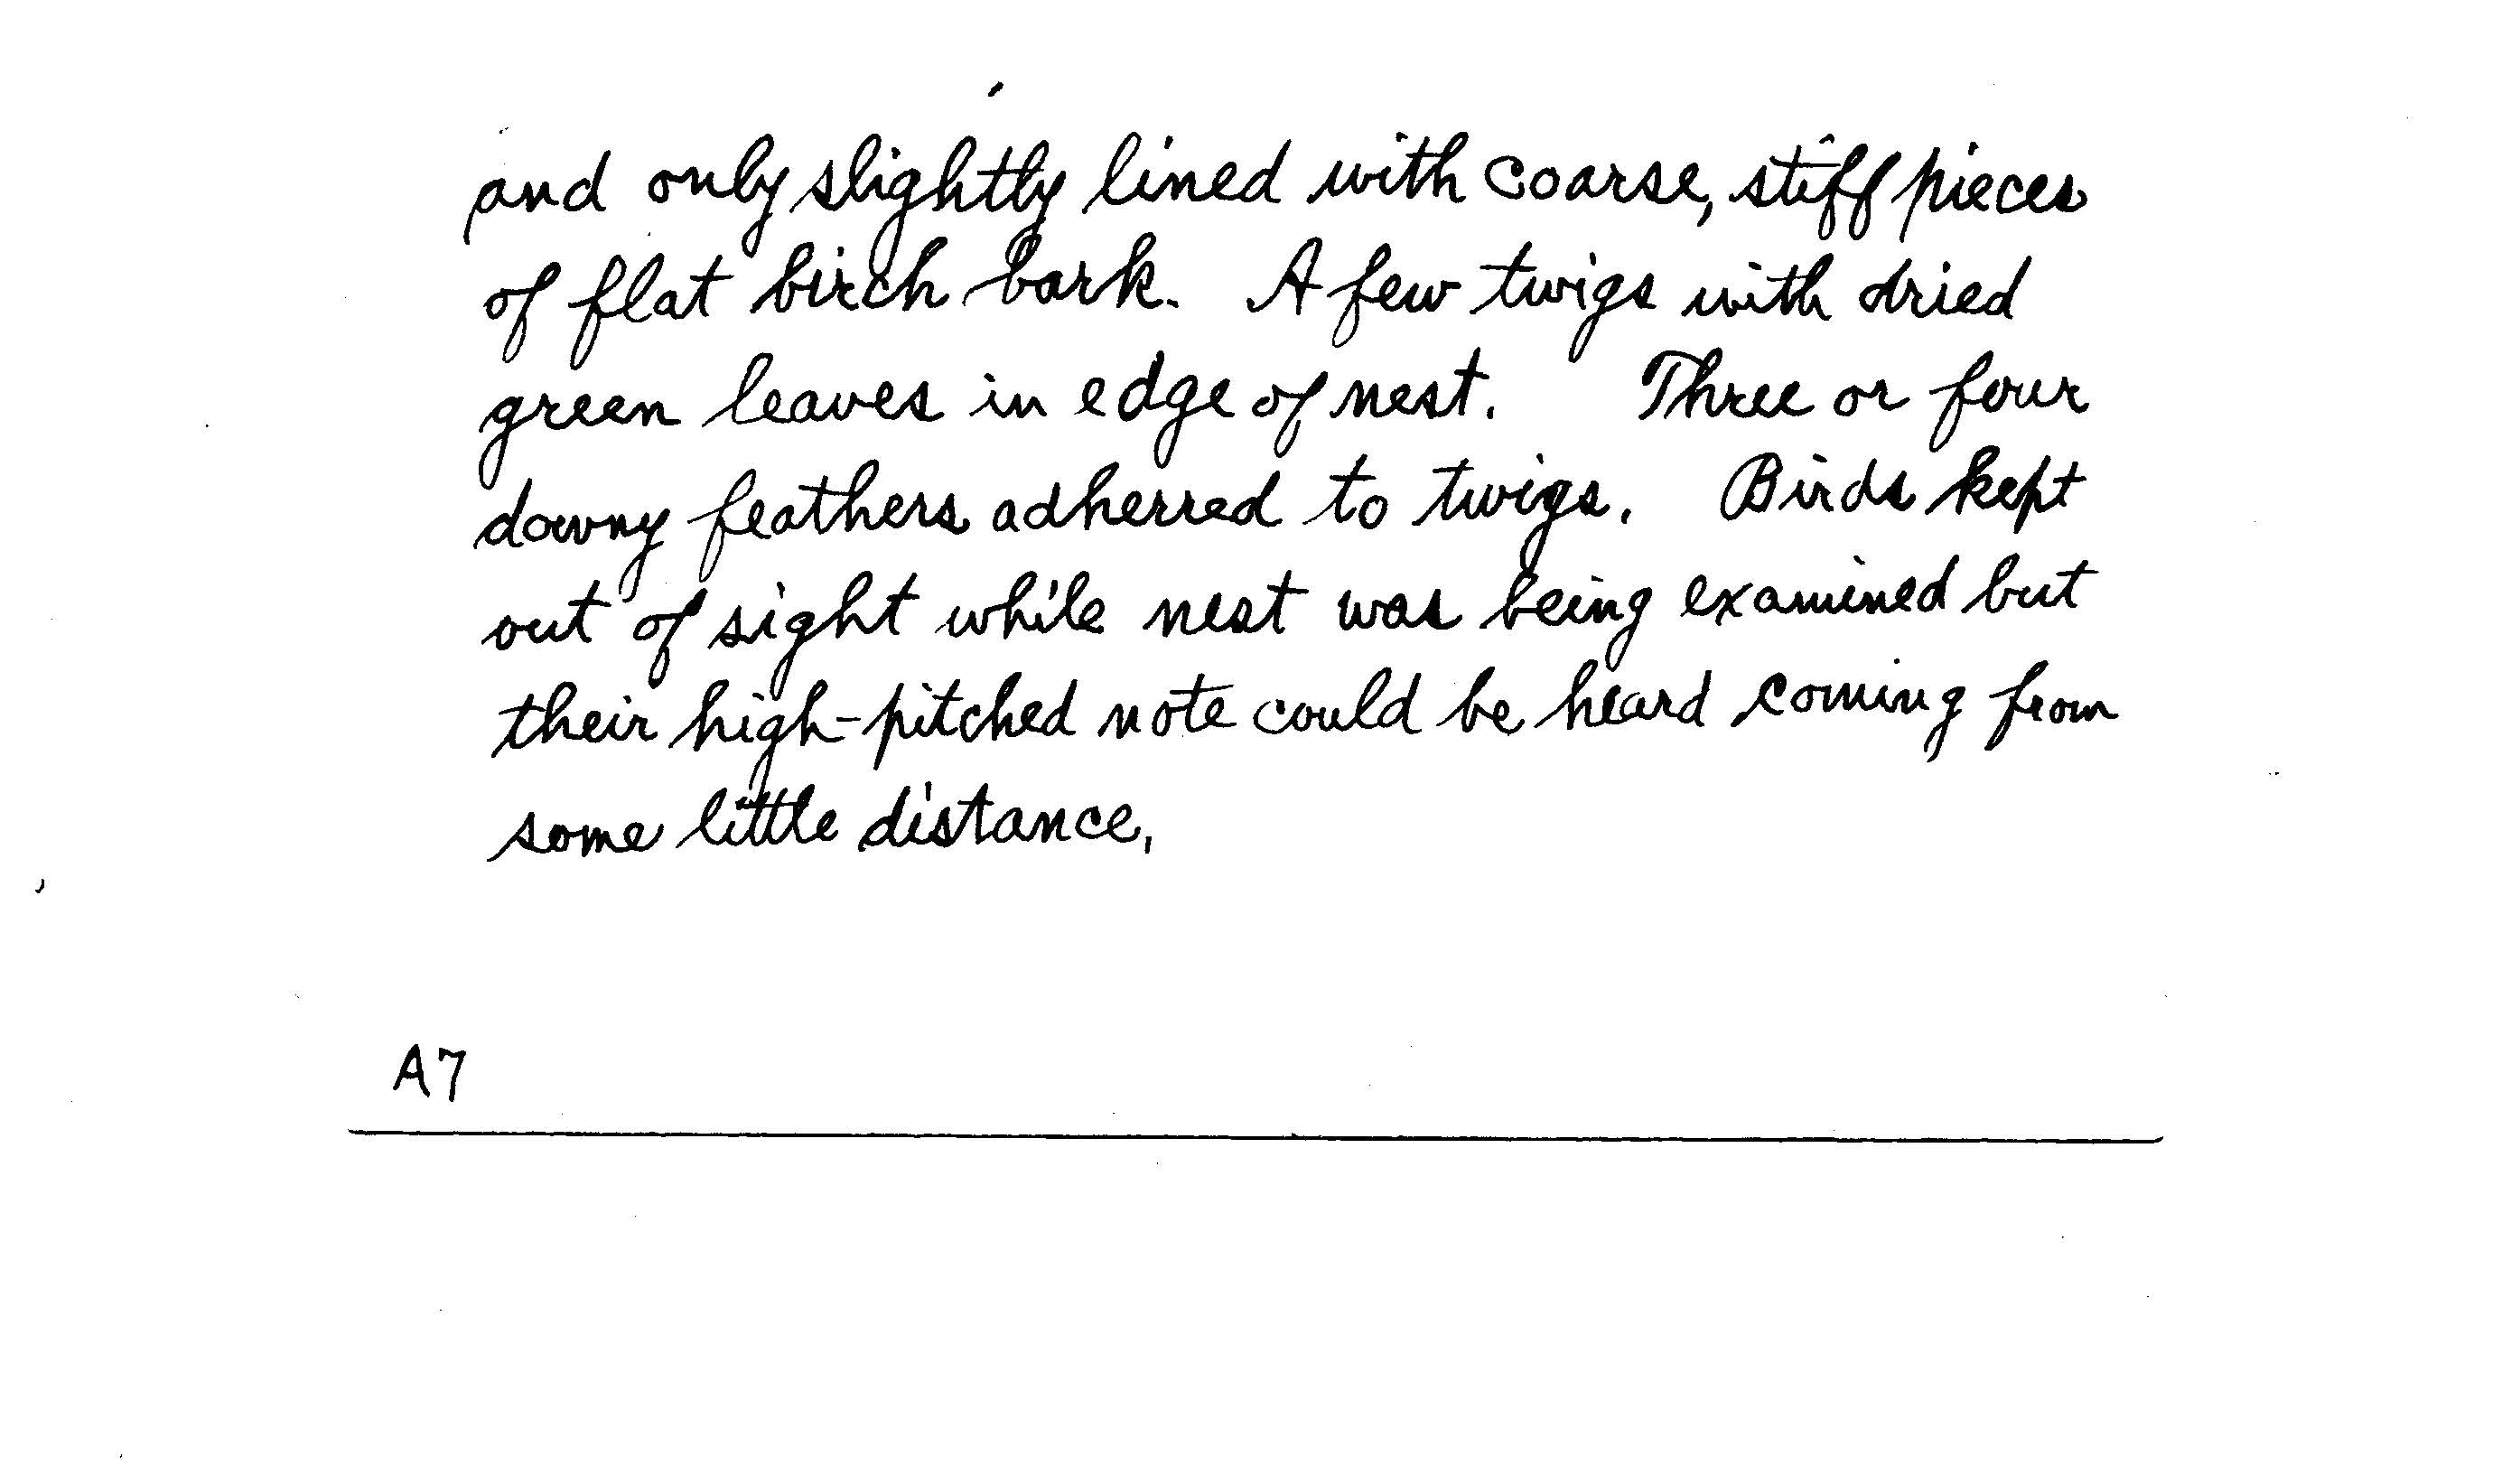 and only slightly lined with coarse, stiff pieces
of flat birch bark. A few twigs with dried
green leaves in edge of nest. Three or four
downy feathers adherred to twigs. Birds kept
out of sight while nest was being examined but
their high-pitched note could be heard coming from
some little distance.
A7